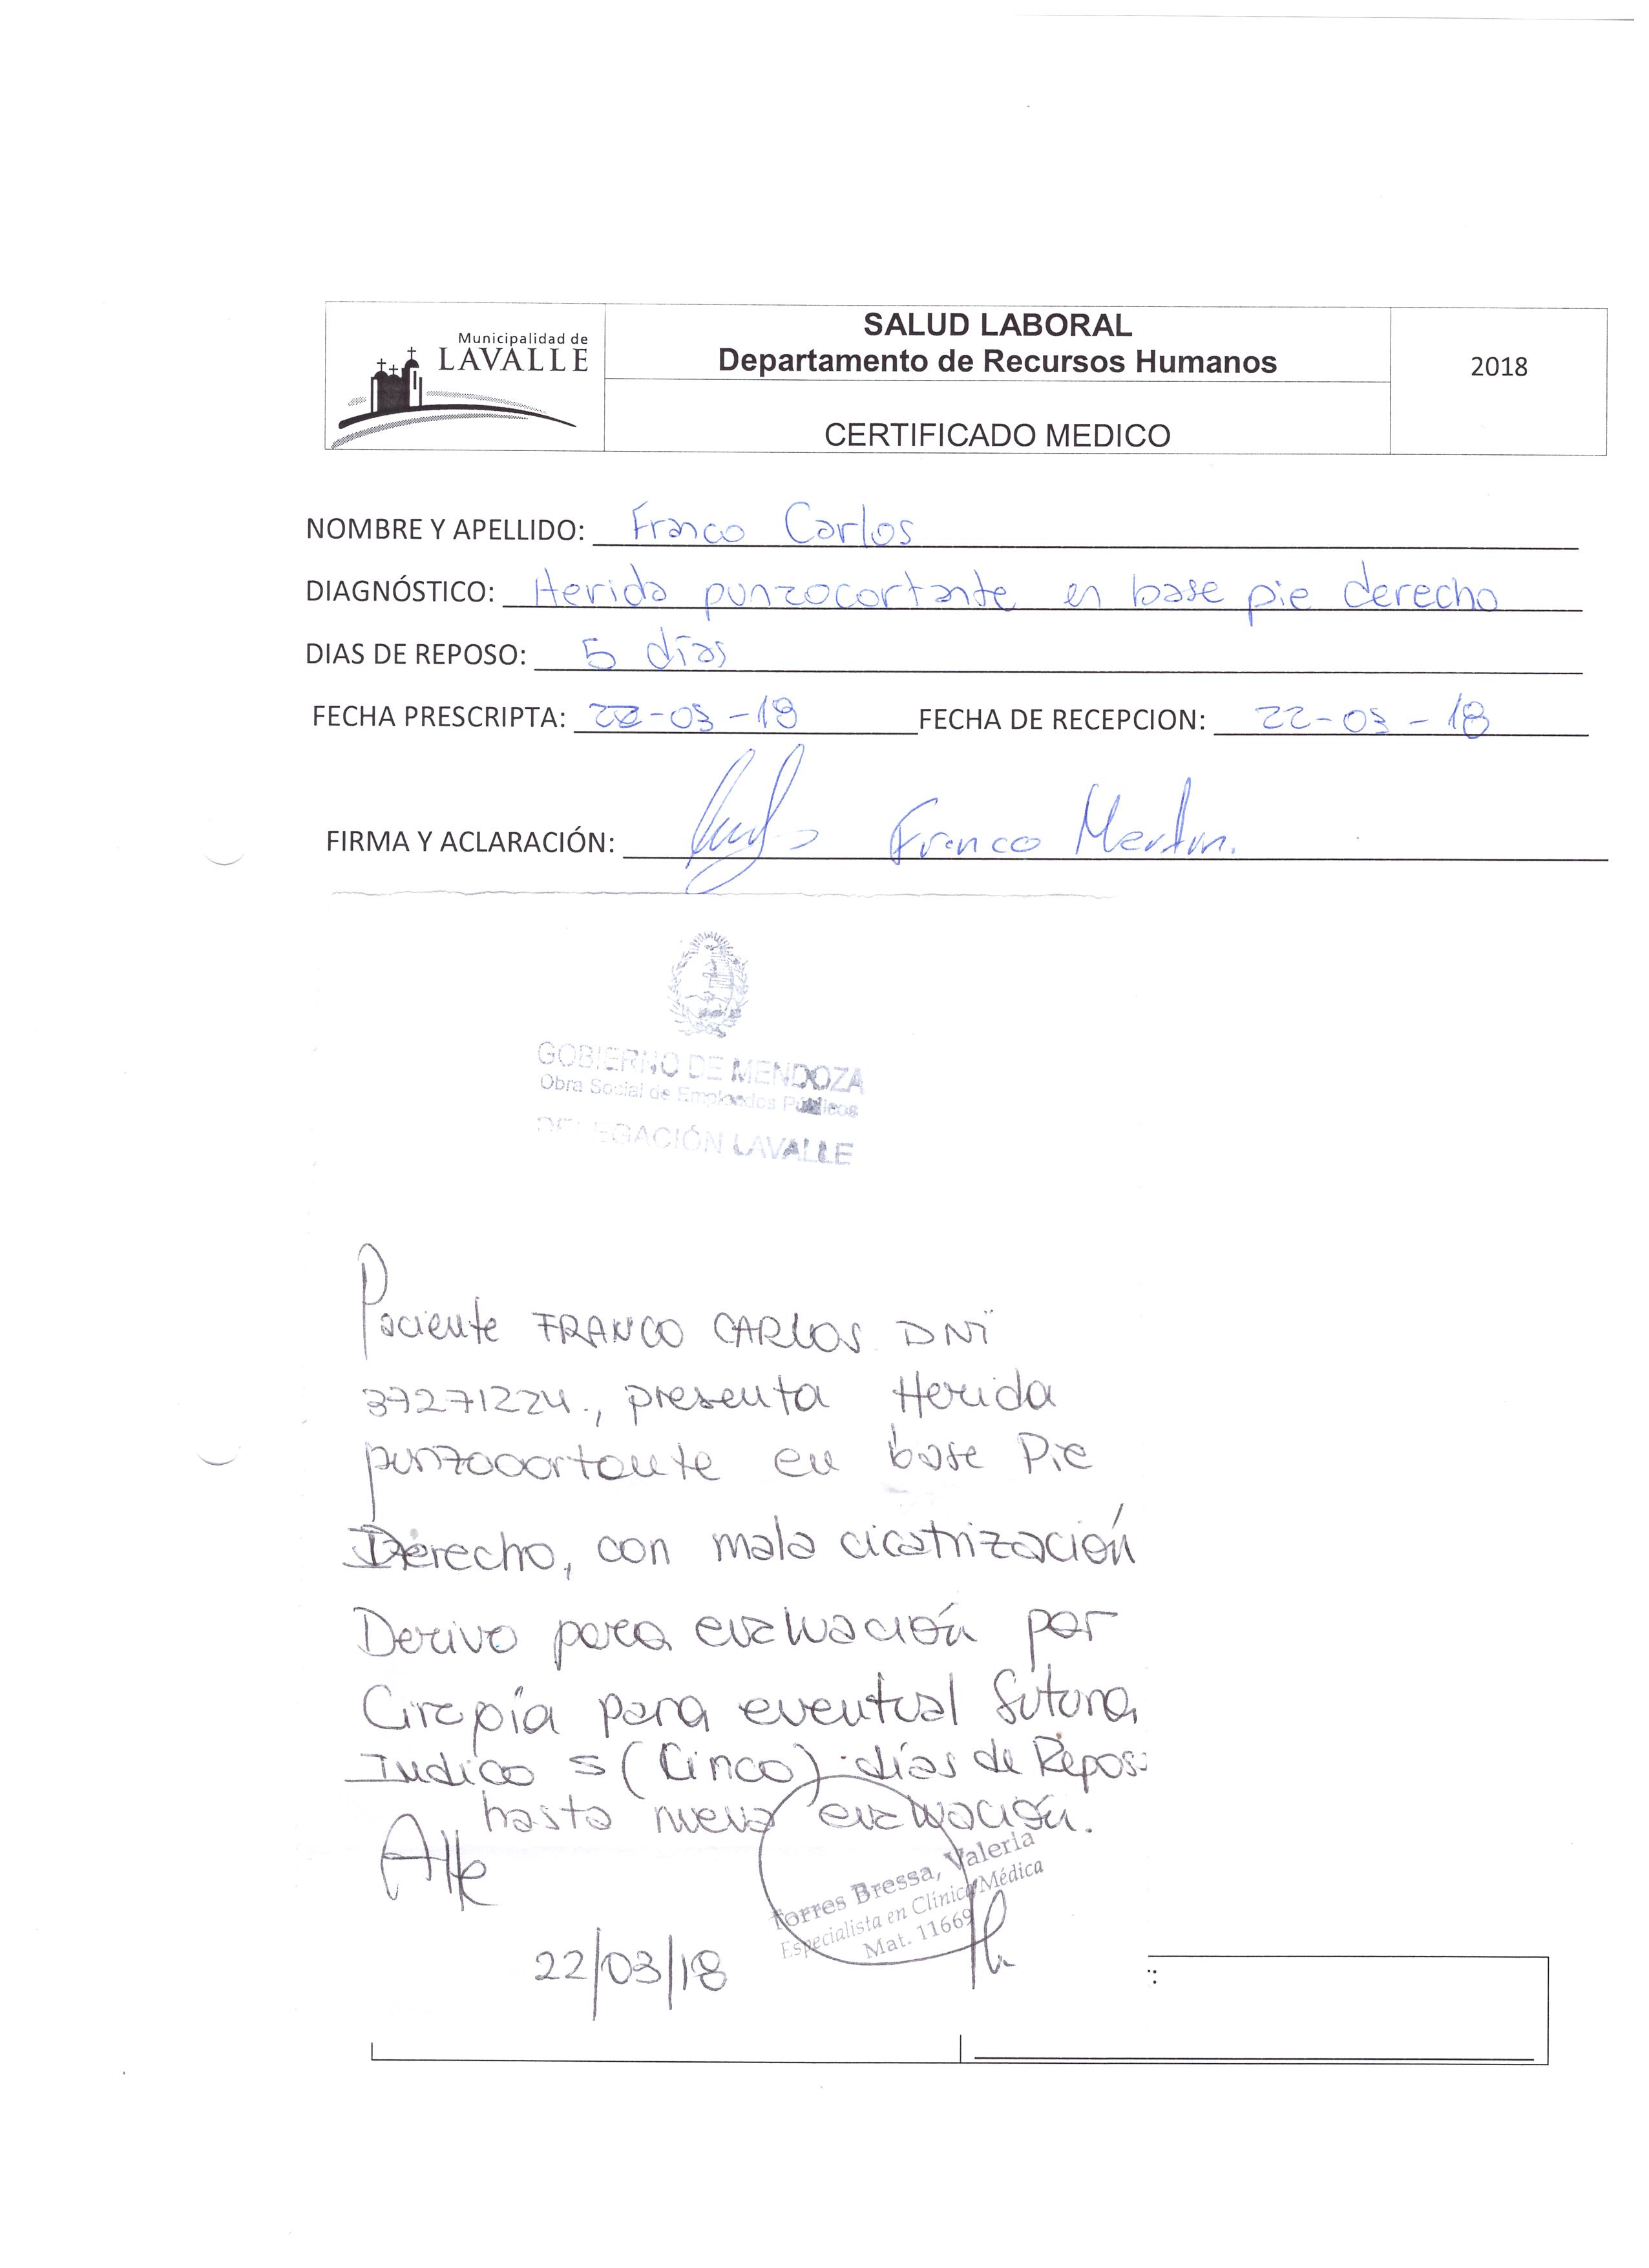 Municipalidad de
LAVALLE
SALUD LABORAL
Departamento de Recursos Humanos
CERTIFICADO MEDICO
2018
NOMBRE Y APELLIDO: Franco Carlos
DIAGNÓSTICO: Herida punzocortante en base pie derecho
DIAS DE REPOSO: 5 días
FECHA PRESCRIPTA: 22-03-18 FECHA DE RECEPCION: 22-03-18
FIRMA Y ACLARACIÓN: Franco
GOBIERNO DE MENDOZA
Obra Social de Empleados Públicos
DELEGACIÓN LAVALLE
Paciente FRANCO CARLOS DNI
37271224., presenta Herida
punzocortante en base Pie
Derecho, con mala cicatrización
Derivo para evaluación por
Cirugía para eventual sutura,
Indico 5 (Cinco) días de Reposo
hasta nueva evaluación.
Atte
Torres Bressa, Valeria
Especialista en Clínica Médica
Mat. 11669
22/03/18